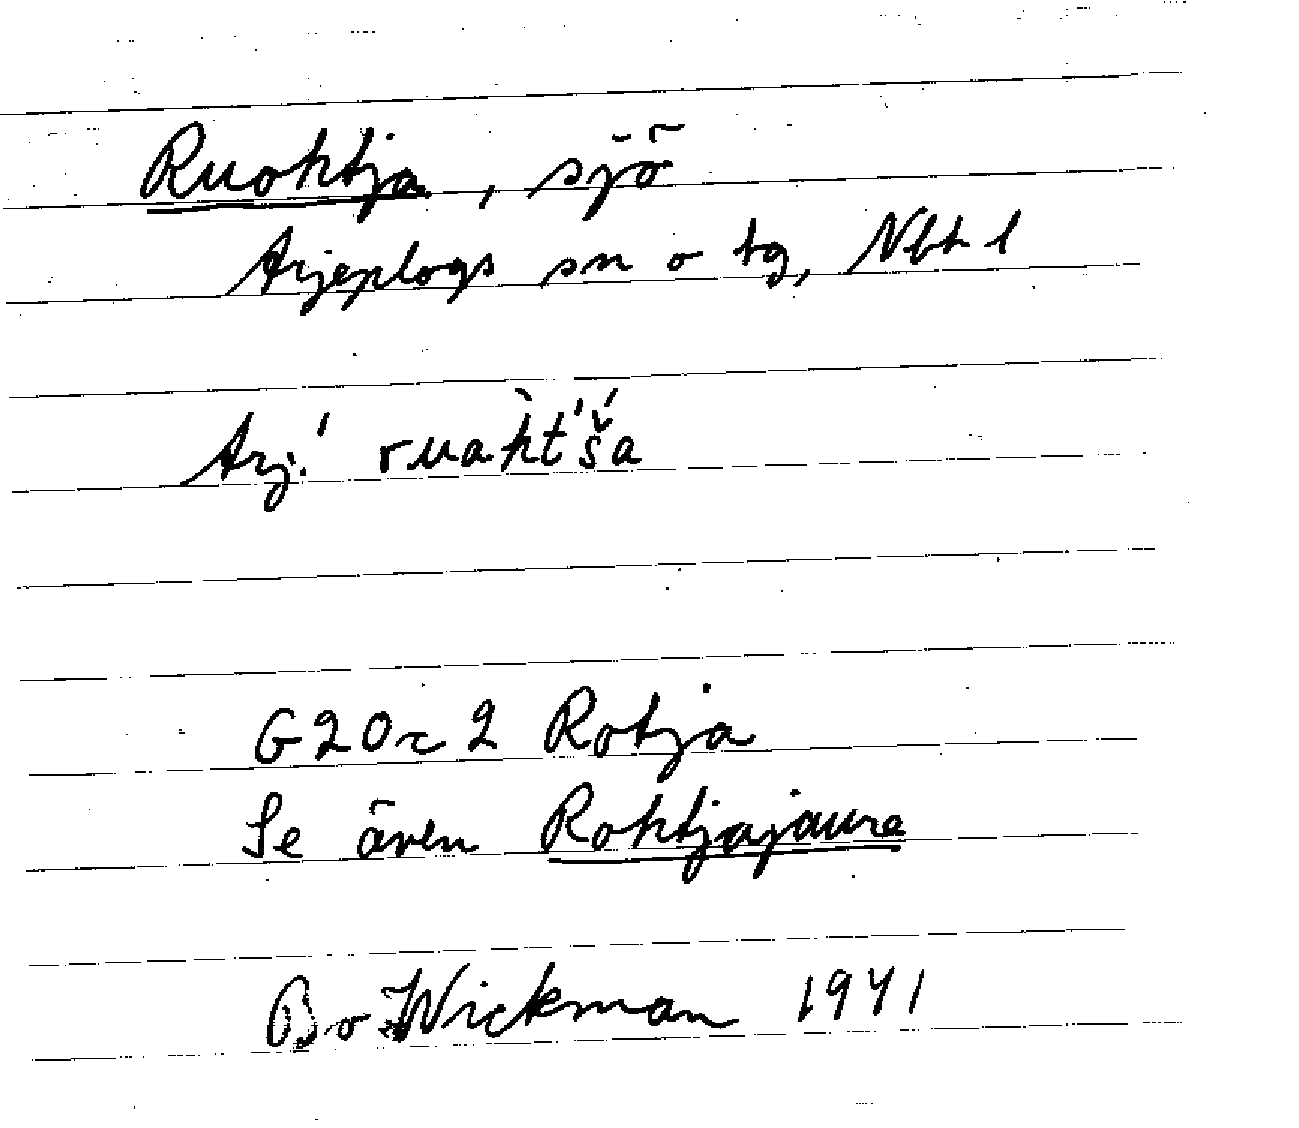 Ruohtja, sjö
Arjeplogs sn o tg, Nbt l
Arj.' ruah̀t'š́a
G20c2 Rotja
Se även Rohtjajaure
Bo Wickman 1941